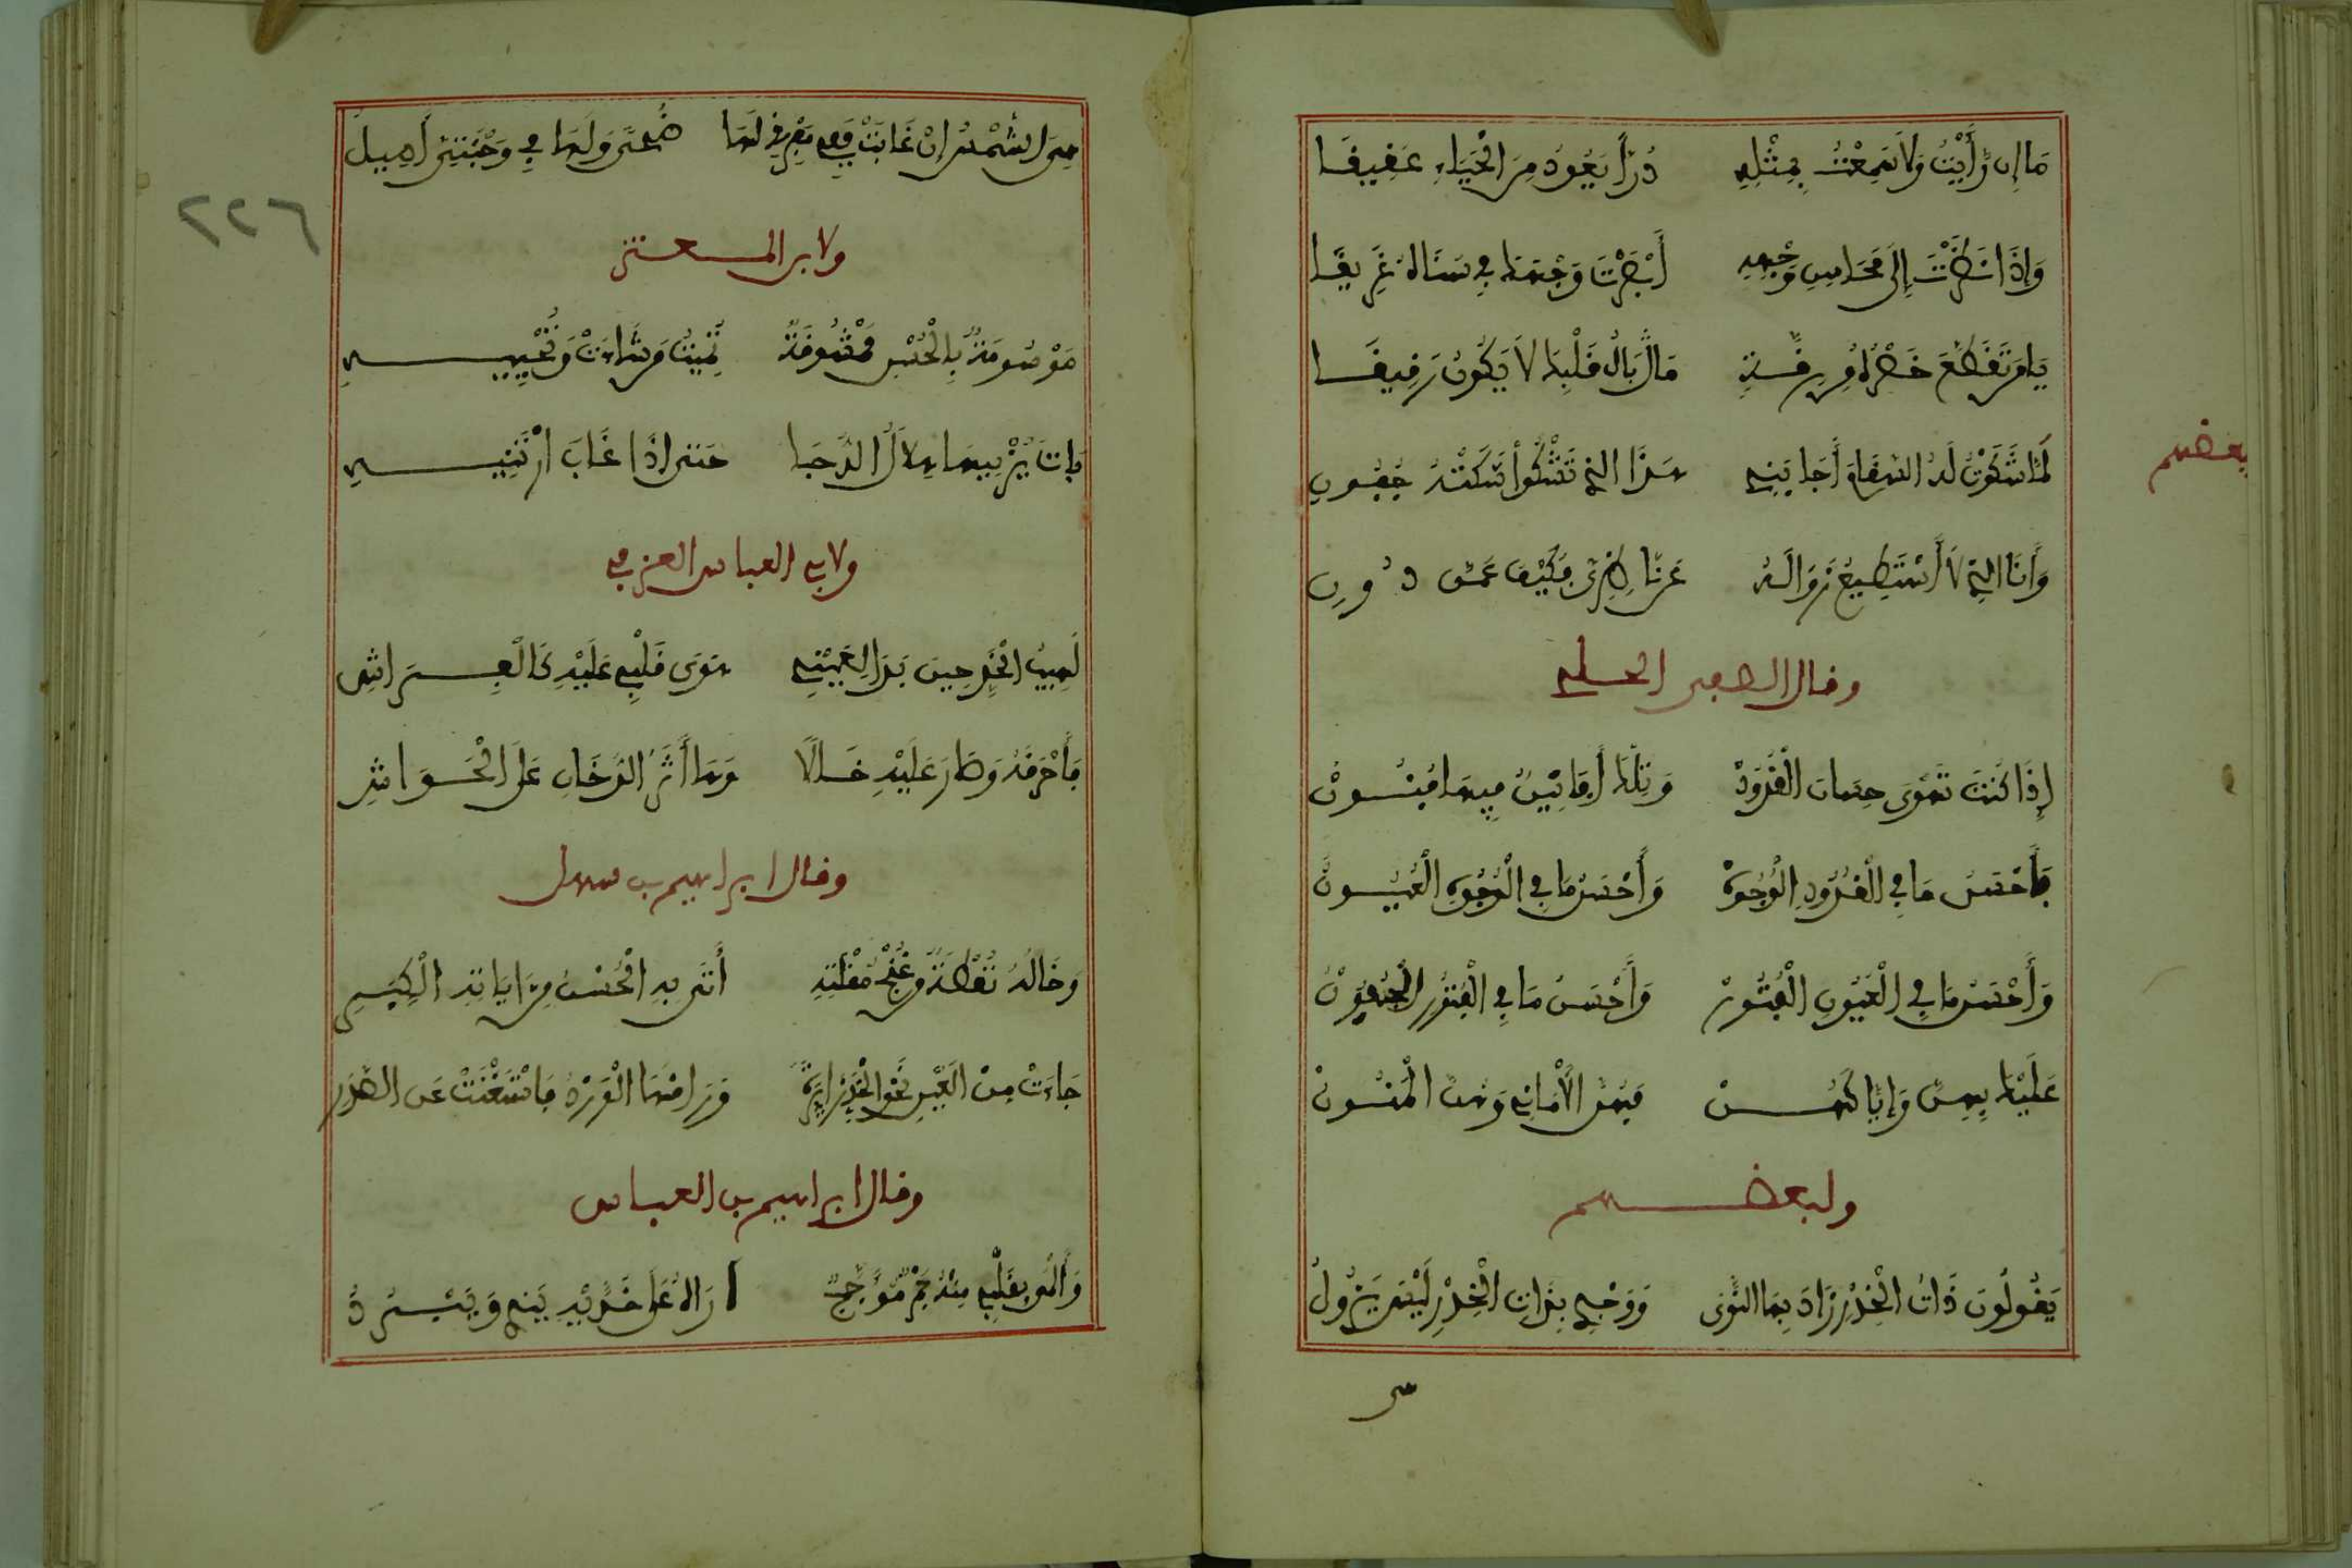 مَا إِن رَّأَيْتُ وَلَا سَمِعْتُ بِمِثْلِهِ دُرّاً يَعُودُ مِنَ الْحَيَاءِ عَقِيقَا
وَإِذَا نَظَرْتَ إِلَى مَحَاسِنِ وَجْهِهِ أَبْصَرْتَ وَجْهَكَ فِي سَنَاهُ غَرِيقَا
يَا مَن تَقَطَّعَ خَصْرُهُ مِن رِقَّةٍ مَا بَالُ قَلْبِكَ لَا يَكُونُ رَقِيقَا
بعضهم
لَمَّا شَكَوْتُ لَهُ السِّقَامَ أَجَابَنِي هَذَا الذِي تَشْكُو شَكَتْهُ جُفُونِي
وَأَنَا الذِي لَا أَسْتَطِيعُ زَوَالَهُ عَنْ نَاظِرِي فَكَيْفَ عَمَّن دُونِي
وقال الصفي الحلي
إِذَا كُنْتَ تَهْوَى حِسَانَ الْقُدُودْ وَتِلْكَ أَفَانِينُ فِيهَا فُنُونْ
فَأَحْسَنُ مَا فِي الْقُدُودِ الْوُجُوهْ وَأَحْسَنُ مَا فِي الْوُجُوهِ الْعُيُونْ
وَأَحْسَنُ مَا فِي الْعُيُونِ الْفُتُورْ وَأَحْسَنُ مَا فِي الْفُتُورِ الْجُفُونْ
عَلَيْكَ بِهِنَّ وَإِيَّاكَهُنْ فَهُنَّ الْأَمَانِي وَهُنَّ الْمَنُونْ
ولبعضهم
يَقُولُونَ ذَاتُ الْخِدْرِ زَادَ بِهَا النَّوَى وَوَجْدِي بِذَاتِ الْخِدْرِ لَيْسَ يَزُولُ
هِيَ الشَّمْسُ إِنْ غَابَتْ فَفِي مَفْرِقِي لَهَا ضُحًى وَلَهَا فِي وَجْنَتَيَّ أَصِيلُ
٢٢٦
ولابن المعتز
مَوْصُوفَةٌ بِالْحُسْنِ مَعْشُوقَةٌ تُمِيتُ مَن شَاءَتْ وَتُحْيِيهِ
بَاتَ يُرِينِيهَا هِلَالُ الدُّجَا حَتَّى إِذَا غَابَ أَرَتْنِيهِ
ولابي العباس العزفي
لَهِيبُ الْخَدِّ حِينَ بَدَا لِعَيْنِي هَوَى قَلْبِي عَلَيْهِ كَالْفِرَاشِ
فَأَحْرَقَهُ وَصَارَ عَلَيْهِ خَالًا وَهَا أَثَرُ الدُّخَانِ عَلَى الْحَوَاشِ
وقال ابراهيم بن سهل
وَخَالُهُ نُقْطَةٌ مِن غُنْجِ مُقْلَتِهِ أَتَى بِهِ الْحُسْنُ مِنْ آيَاتِهِ الْكِبَرِ
جَاءَتْ مِنَ الْعَيْنِ نَحْوَ الْخَدِّ زَائِرَةً وَرَاقَهَا الْوَرْدُ فَاسْتَغْنَتْ عَنِ الصَّدَرِ
وقال ابراهيم بن العباس
وَأَلْقَى بِقَلْبِي مِنْهُ جَمْرٌ مُؤَجَّجٌ أَرَاهُ عَلَى خَدَّيْهِ يَنْدَى وَيَبْرُدُ